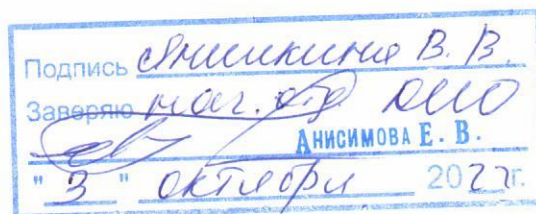 Подпись Аникина В. В.
Заверяю нач. отд ОИО
Анисимова Е. В.
" 3 " октября 2022г.